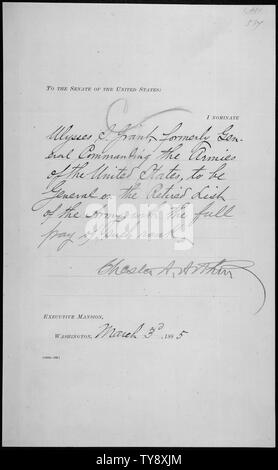 To the Senate of the United States:
I nominate
Ulysses S. Grant, formerly Gen-
eral Commanding the Armies
of the United States, to be
General on the Retired List
of the Army with the full
pay of such rank.
Chester A. Arthur
Executive Mansion,
Washington, March 3d 1885
alamy
Image ID: TY8XJM
www.alamy.com